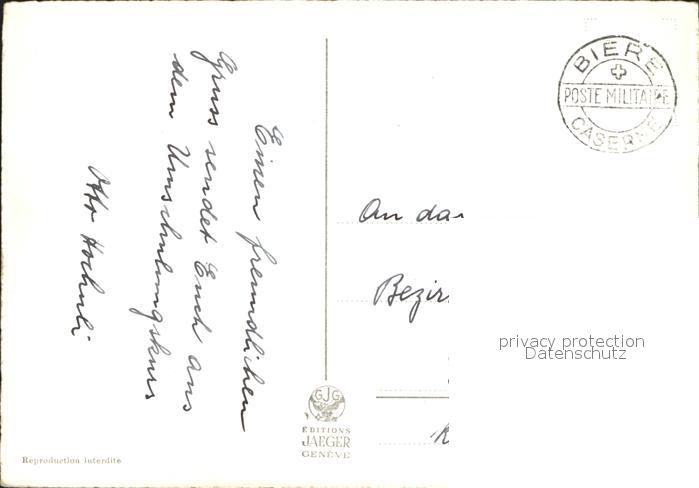 Einen freundlichen
Gruss sendet Euch aus
dem Umschulungskurs
Otto Hochuli
BIERE
POSTE MILITAIRE
CASERNE
An das
Bezir
privacy protection
Datenschutz
GJG
ÉDITIONS
JAEGER
GENÈVE
Reproduction interdite